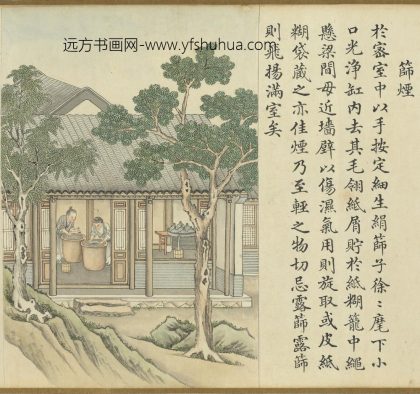 远方书画网-www.yfshuhua.com
篩煙
於密室中以手按定細生絹篩子徐〻麾下小
口光淨缸內去其毛翎紙屑貯於紙糊籠中繩
懸梁間毋近墻壁以傷濕氣用則旋取或皮紙
糊袋藏之亦佳煙乃至輕之物切忌露篩露篩
則飛揚滿室矣